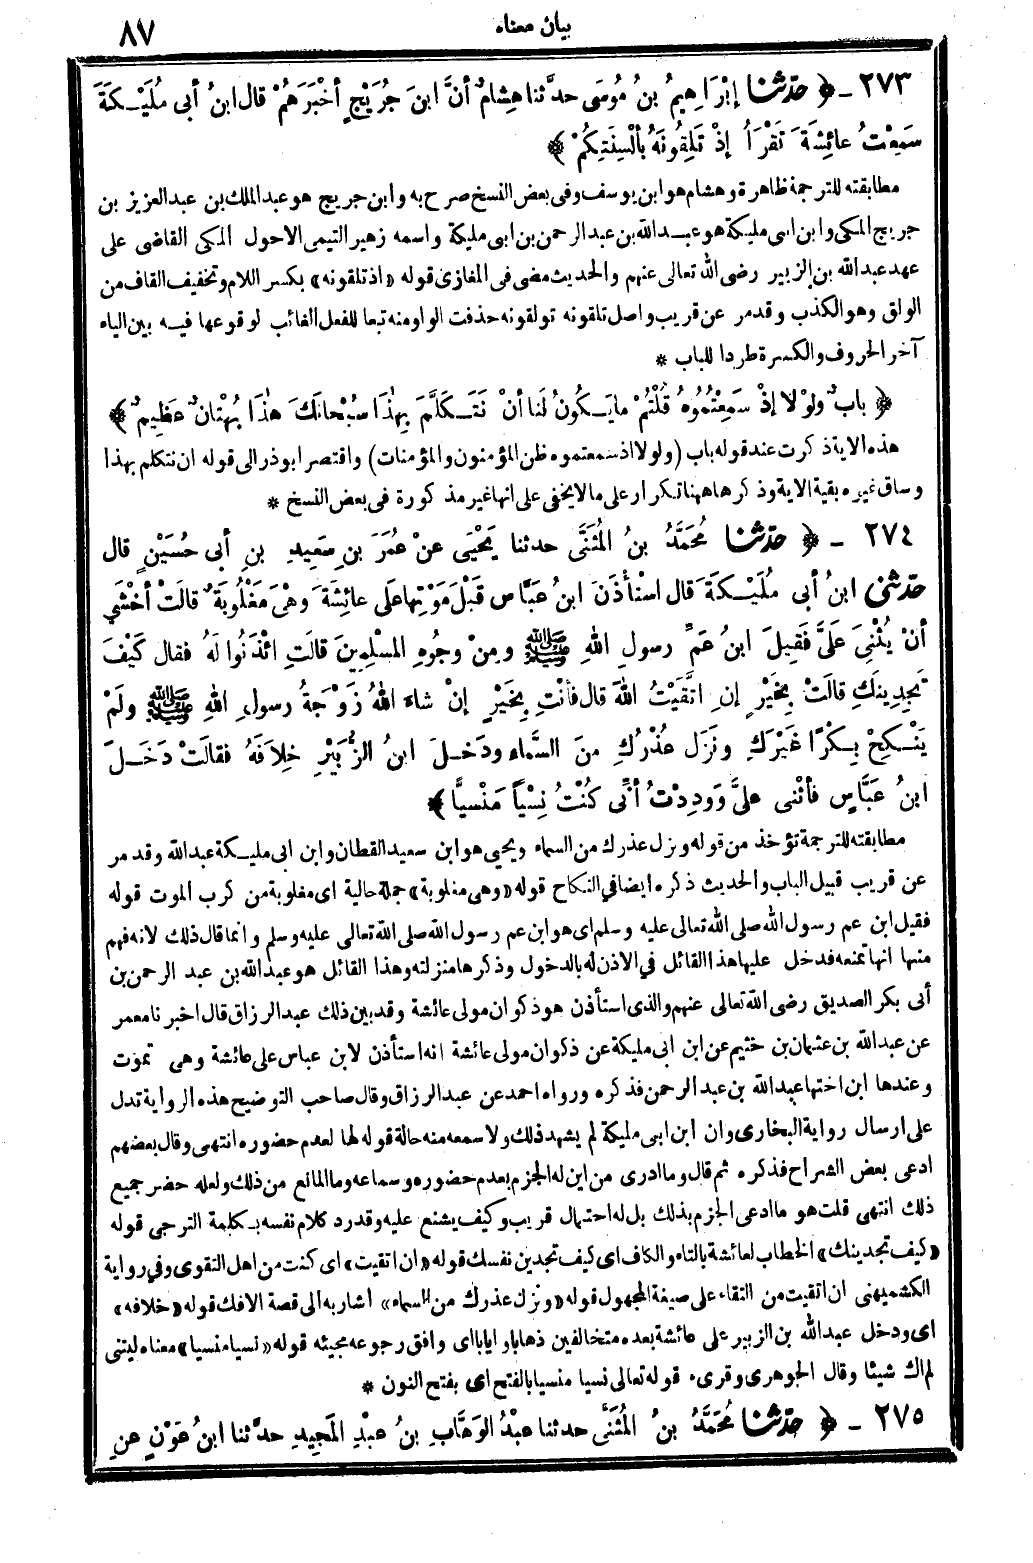 بيان معناه ٨٧
٢٧٣ - ﴿ حدّثنا إبْرَاهِيمُ بنُ مُوسَى حدَّثنا هِشامٌ أنَّ ابنَ جُرَيْجٍ أخْبَرَهُمْ قال ابنُ أبى مُلَيْكَةَ
سَمِعْتُ عائِشَةَ تَقْرَأُ إذْ تَلِقُونَهُ بألْسِنَتِكُمْ ﴾
مطابقته للترجمة ظاهرة وهشام هو ابن يوسف وفى بعض النسخ صرح به وابن جريج هو عبد الملك بن عبد العزيز بن
جريج المكى وابن ابى مليكة هو عبد الله بن عبد الرحمن بن ابى مليكة واسمه زهير التيمى الاحول المكى القاضى على
عهد عبد الله بن الزبير رضى الله تعالى عنهم والحديث مضى فى المغازى قوله «اذ تلقونه» بكسر اللام وتخفيف القاف من
الولق وهو الكذب وقد مر عن قريب واصل تلقونه تولقونه حذفت الواو منه تبعا للفعل الغائب لوقوعها فيه بين الياء
آخر الحروف والكسرة طردا للباب *
﴿ بابٌ ولَوْلا إذْ سَمِعْتُمُوهُ قُلْتُمْ ما يَكُونُ لَنا أنْ نَتَكَلَّمَ بِهٰذَا سُبْحَانَكَ هٰذَا بُهْتَانٌ عَظِيمٌ ﴾
هذه الاية ذكرت عند قوله باب (ولولا اذ سمعتموه ظن المؤمنون والمؤمنات) واقتصر ابو ذر الى قوله ان نتكلم بهذا
وساق غيره بقية الاية وذكرها ههنا تكرار على ما لا يخفى على انها غير مذكورة فى بعض النسخ *
٢٧٤ - ﴿ حدّثنا مُحَمَّدُ بنُ المُثَنَّى حدثنا يَحْيَى عنْ عُمَرَ بنِ سَعِيدِ بنِ أبى حُسَيْنٍ قال
حدّثنى ابنُ أبى مُلَيْكَةَ قال اسْتَأْذَنَ ابنُ عَبَّاسٍ قَبْلَ مَوْتِها عَلَى عائِشَةَ وهْىَ مَغْلُوبَةٌ قالَتْ أخْشَى
أنْ يُثْنِىَ عَلَىَّ فَقِيلَ ابنُ عَمِّ رسولِ اللهِ ﷺ ومِنْ وجُوهِ المُسْلِمِينَ قالَتِ ائْذَنُوا لَهُ فقال كَيْفَ
تَجِدِينَكِ قالَتْ بِخَيْرٍ إنِ اتَّقَيْتُ اللهَ قال فأنْتِ بِخَيْرٍ إنْ شاءَ اللهُ زَوْجَةُ رسولِ اللهِ ﷺ ولَمْ
يَنْكِحْ بِكْرًا غَيْرَكِ ونَزَلَ عُذْرُكِ مِنَ السَّماءِ ودَخَلَ ابنُ الزُّبَيْرِ خِلافَهُ فقالَتْ دَخَلَ
ابنُ عَبَّاسٍ فأثْنى علىَّ ووَدِدْتُ أنِّى كُنْتُ نِسْياً مَنْسِيًّا ﴾
مطابقته للترجمة تؤخذ من قوله ونزل عذرك من السماء ويحيى هو ابن سعيد القطان وابن ابى مليكة عبد الله وقد مر
عن قريب قبيل الباب والحديث ذكره ايضا فى النكاح قوله «وهى مغلوبة» جملة حالية اى مغلوبة من كرب الموت قوله
فقيل ابن عم رسول الله صلى الله تعالى عليه وسلم اى هو ابن عم رسول الله صلى الله تعالى عليه وسلم وانما قال ذلك لانه فهم
منها انها تمنعه فدخل عليها هذا القائل فى الاذن له بالدخول وذكرها منزلته وهذا القائل هو عبد الله بن عبد الرحمن بن
أبى بكر الصديق رضى الله تعالى عنهم والذى استأذن هو ذكوان مولى عائشة وقد بين ذلك عبد الرزاق قال اخبرنا معمر
عن عبد الله بن عثمان بن خثيم عن ابن ابى مليكة عن ذكوان مولى عائشة انه استأذن لابن عباس على عائشة وهى تموت
وعندها ابن اختها عبد الله بن عبد الرحمن فذكره ورواه احمد عن عبد الرزاق وقال صاحب التوضيح هذه الرواية تدل
على ارسال رواية البخارى وان ابن ابى مليكة لم يشهد ذلك ولا سمعه منه حالة قوله لها لعدم حضوره انتهى وقال بعضهم
ادعى بعض الشراح فذكره ثم قال وما ادرى من اين له الجزم بعدم حضوره وسماعه وما المانع من ذلك ولعله حضر جميع
ذلك انتهى قلت هو ما ادعى الجزم بذلك بل له احتمال قريب وكيف يشنع عليه وقد رد كلام نفسه بكلمة الترجى قوله
«كيف تجدينك» الخطاب لعائشة بالتاء والكاف اى كيف تجدين نفسك قوله «ان اتقيت» اى كنت من اهل التقوى وفى رواية
الكشميهنى ان اتقيت من التقاء على صيغة المجهول قوله «ونزل عذرك من السماء» اشار به الى قصة الافك قوله «خلافه»
اى ودخل عبد الله بن الزبير على عائشة بعده متخالفين ذهابا وايابا اى وافق رجوعه مجيئه قوله «نسيا منسيا» معناه ليتنى
لم اك شيئا وقال الجوهرى وقرىء قوله تعالى نسيا منسيا بالفتح اى بفتح النون *
٢٧٥ - ﴿ حدّثنا مُحَمَّدُ بنُ المُثَنَّى حدثنا عبْدُ الوَهَّابِ بنُ عبْدِ المَجِيدِ حدَّثنا ابنُ عَوْنٍ عنِ